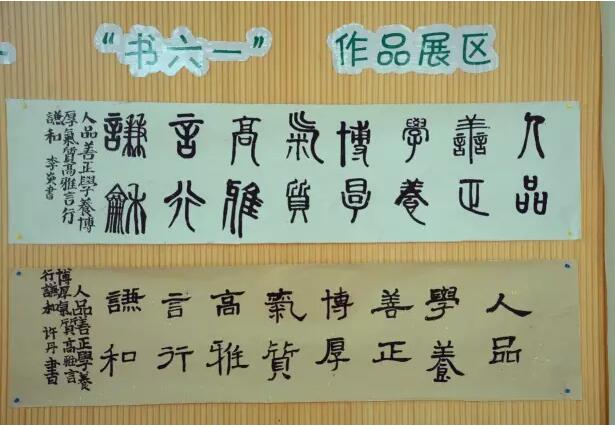 “书六一” 作品展区
人品
善正
學養
博厚
氣質
高雅
言行
謙龢
人品善正學養博
厚氣質高雅言行
謙和 李炎書
人品
學養
善正
博厚
氣質
高雅
言行
謙和
人品善正學養
博厚氣質高雅言
行謙和 许丹書